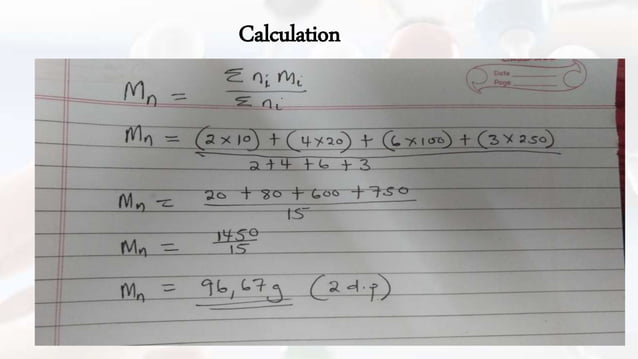 Calculation
Date
Page
Mn = Σ ni Mi / Σ ni
Mn = (2×10) + (4×20) + (6×100) + (3×250) / 2+4+6+3
Mn = 20 + 80 + 600 + 750 / 15
Mn = 1450 / 15
Mn = 96,67g (2 d.p)